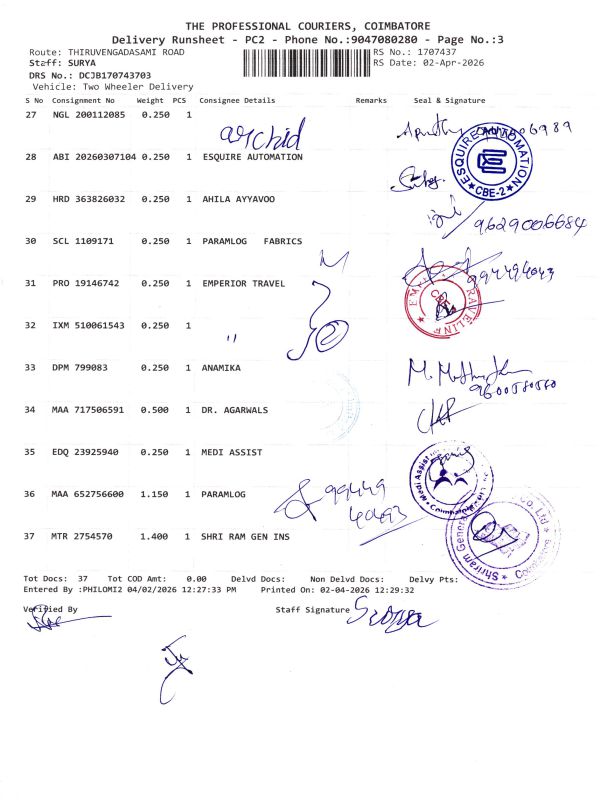 THE PROFESSIONAL COURIERS, COIMBATORE
Delivery Runsheet - PC2 - Phone No.:9047080280 - Page No.:3
Route: THIRUVENGADASAMI ROAD RS No.: 1707437
Staff: SURYA RS Date: 02-Apr-2026
DRS No.: DCJB170743703
Vehicle: Two Wheeler Delivery
S No Consignment No Weight PCS Consignee Details Remarks Seal & Signature
27 NGL 200112085 0.250 1
archid
28 ABI 20260307104 0.250 1 ESQUIRE AUTOMATION
ESQUIRE AUTOMATION
★ CBE-2 ★
29 HRD 363826032 0.250 1 AHILA AYYAVOO
9629006684
30 SCL 1109171 0.250 1 PARAMLOG FABRICS
31 PRO 19146742 0.250 1 EMPERIOR TRAVEL
CBE
32 IXM 510061543 0.250 1
"
33 DPM 799083 0.250 1 ANAMIKA
9600580560
34 MAA 717506591 0.500 1 DR. AGARWALS
35 EDQ 23925940 0.250 1 MEDI ASSIST
Medi Assist
36 MAA 652756600 1.150 1 PARAMLOG
99449
40493
37 MTR 2754570 1.400 1 SHRI RAM GEN INS
Shriram General Co. Ltd
Tot Docs: 37 Tot COD Amt: 0.00 Delvd Docs: Non Delvd Docs: Delvy Pts:
Entered By :PHILOMI2 04/02/2026 12:27:33 PM Printed On: 02-04-2026 12:29:32
Verified By Staff Signature Surya